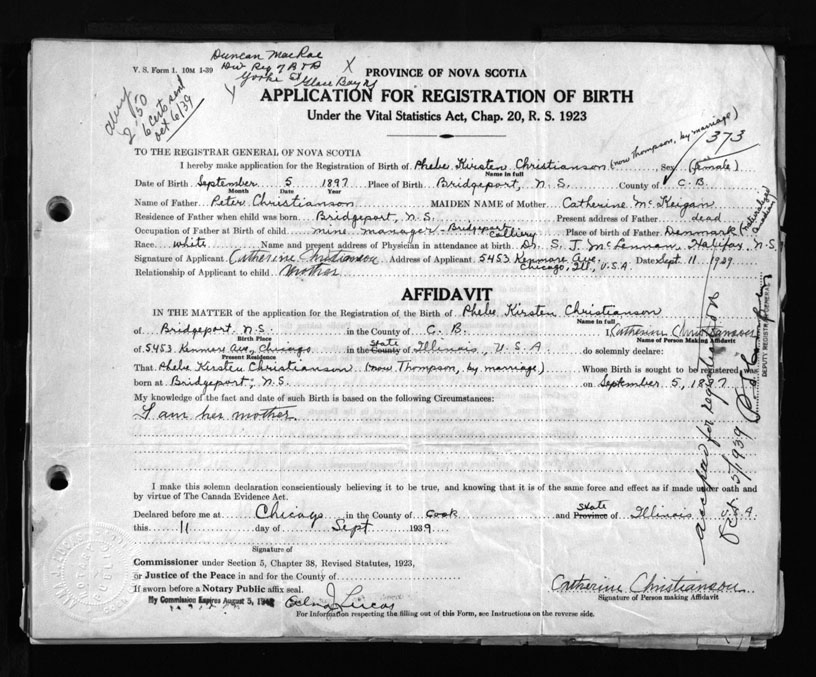 Duncan MacRae
Div Reg of B & D
Yorke St
Glace Bay NS
X
V. S. Form 1. 10M 1-39
2.50
6 certs sent
Oct 6/39
PROVINCE OF NOVA SCOTIA
APPLICATION FOR REGISTRATION OF BIRTH
Under the Vital Statistics Act, Chap. 20, R. S. 1923
373
TO THE REGISTRAR GENERAL OF NOVA SCOTIA
I hereby make application for the Registration of Birth of Phebe Kirsten Christianson (now Thompson, by marriage), Sex (female)
Name in full
Date of Birth September 5 1897 Place of Birth Bridgeport, N. S. County of C. B.
Month Date Year
Name of Father Peter Christianson MAIDEN NAME of Mother Catherine McKeigan
Residence of Father when child was born Bridgeport, N. S. Present address of Father dead
Occupation of Father at Birth of child mine manager - Bridgeport Colliery Place of birth of Father Denmark (Naturalized Canadian)
Race white Name and present address of Physician in attendance at birth Dr. S. J. McLennan, Halifax, N.S.
Signature of Applicant Catherine Christianson Address of Applicant 5453 Kenmore Ave. Chicago, Ill, U.S.A. Date Sept. 11 1939
Relationship of Applicant to child Mother
AFFIDAVIT
IN THE MATTER of the application for Registration of the Birth of Phebe Kirsten Christianson
Name in full
of Bridgeport N.S. in the County of C. B. I, Catherine Christianson
Birth Place Name of Person Making Affidavit
of 5453 Kenmore Ave, Chicago in the County State of Illinois, U.S.A do solemnly declare:
Present Residence
That Phebe Kirsten Christianson (now Thompson, by marriage) Whose Birth is sought to be registered was
born at Bridgeport, N.S. on September 5, 1897
My knowledge of the fact and date of such Birth is based on the following Circumstances:
I am her mother
I make this solemn declaration conscientiously believing it to be true, and knowing that it is of the same force and effect as if made under oath and
by virtue of The Canada Evidence Act.
Declared before me at Chicago in the County of Cook and Province State of Illinois U.S.A.
this 11 day of Sept 1939
Signature of
Commissioner under Section 5, Chapter 38, Revised Statutes, 1923,
or Justice of the Peace in and for the County of
If sworn before a Notary Public affix seal.
My Commission Expires August 5,
Edna J. Lucas
Catherine Christianson
Signature of Person making Affidavit
For Information respecting the filling out of this Form, see Instructions on the reverse side.
accepted for registration
Oct. 5/1939
DEPUTY REGISTRAR GENERAL